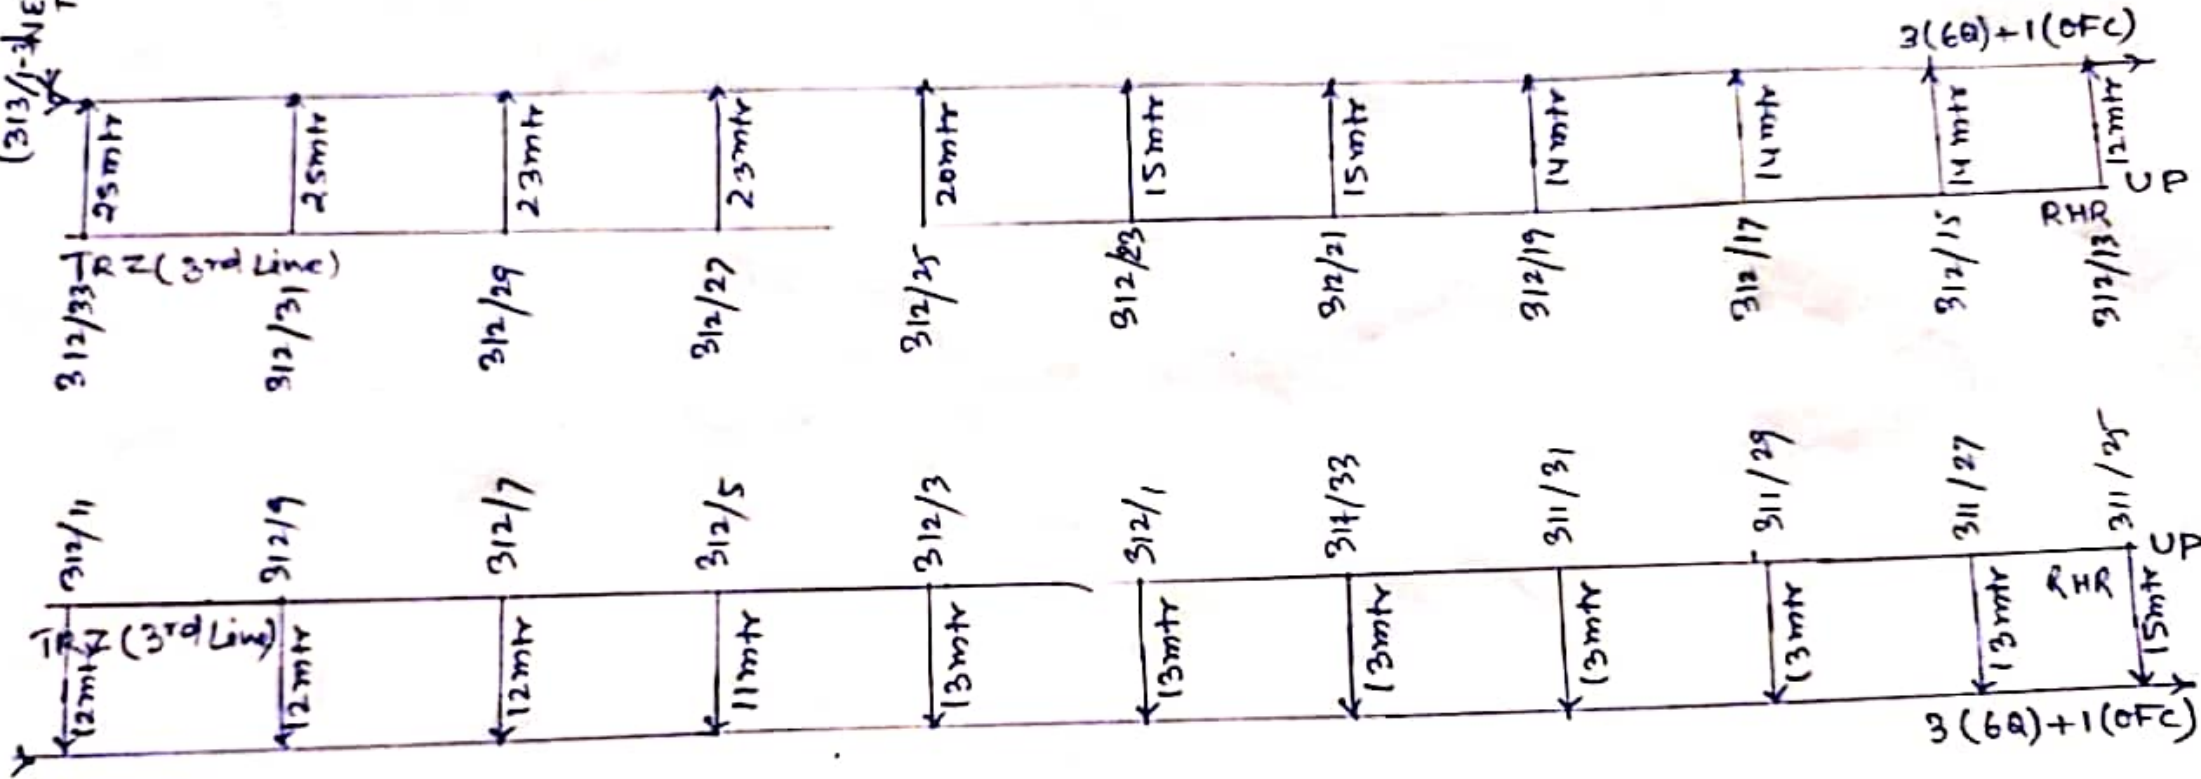 (313/1-3)
3(6Q)+1(OFC)
25mtr 25mtr 23mtr 23mtr 20mtr 15mtr 15mtr 14mtr 14mtr 14mtr 12mtr
UP
TRZ(3rd Line) RHR
312/33 312/31 312/29 312/27 312/25 312/23 312/21 312/19 312/17 312/15 312/13
312/11 312/9 312/7 312/5 312/3 312/1 311/33 311/31 311/29 311/27 311/25
UP
TRZ(3rd Line) RHR
12mtr 12mtr 12mtr 11mtr 13mtr 13mtr 13mtr 13mtr 13mtr 13mtr 15mtr
3(6Q)+1(OFC)